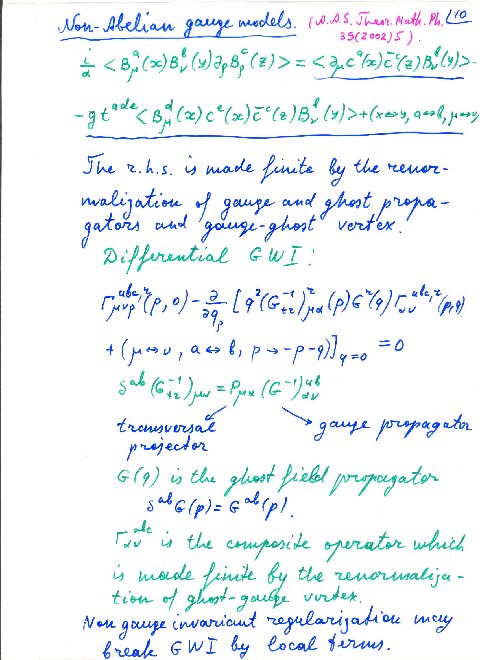 Non-Abelian gauge models. (A.A.S. Theor. Math. Ph. 10
39(2002)5).
i/α <B_μ^a(x)B_ν^b(y)∂_ρB_ρ^c(z)> = <∂_μc^a(x)c̄^c(z)B_ν^b(y)> -
-gt^{ade}<B_μ^d(x)c^e(x)c̄^c(z)B_ν^b(y)>+(x↔y, a↔b, μ↔ν)
The r.h.s. is made finite by the renor-
malization of gauge and ghost propa-
gators and gauge-ghost vertex.
Differential GWI:
Γ_{μνρ}^{abc,r}(p,0) - ∂/∂q_ρ [q²(G_{tr}^{-1})_{μα}^r(p)G^r(q)Γ_{αν}^{abc,r}(p,q)
+ (μ↔ν, a↔b, p→-p-q)]_{q=0} = 0
δ^{ab}(G_{tr}^{-1})_{μν} = P_{μα}(G^{-1})_{αν}^{ab}
transversal projector
gauge propagator
G(q) is the ghost field propagator
δ^{ab}G(p) = G^{ab}(p).
Γ_{αν}^{abc} is the composite operator which
is made finite by the renormaliza-
tion of ghost-gauge vertex.
Non gauge invariant regularization may
break GWI by local terms.